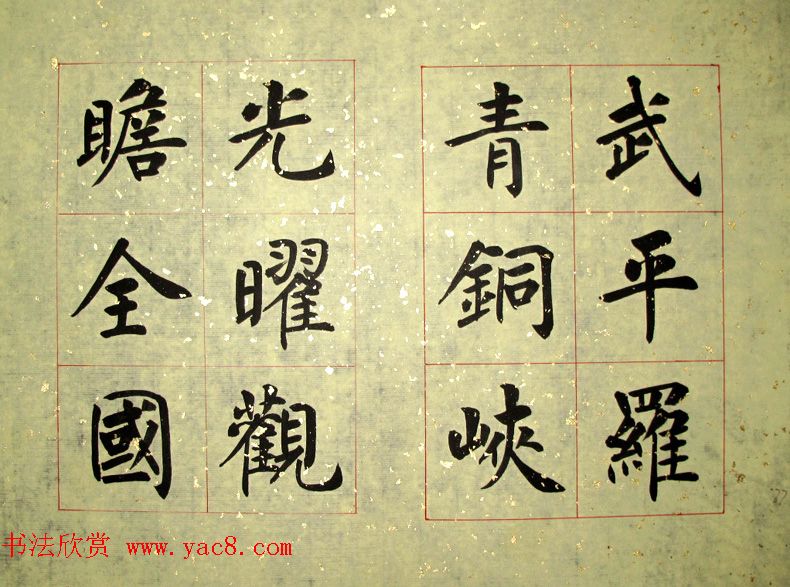 武平羅
青銅峽
光曜觀
瞻全國
书法欣赏 www.yac8.com